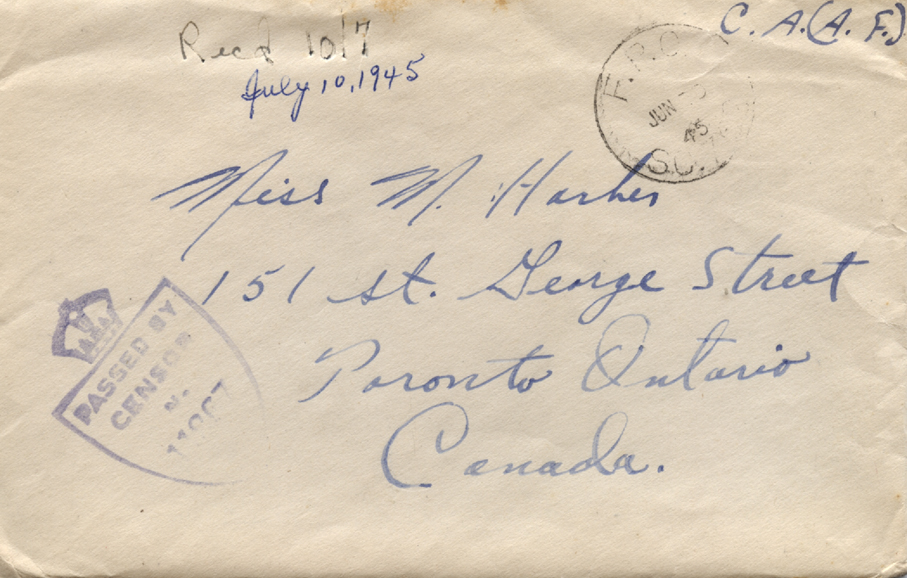 C. A. (A. F.)
Rec'd 10/7
July 10, 1945
F.P.O.
JUN
45
S.C.
Miss M. Harber
151 St. George Street
Toronto Ontario
Canada.
PASSED BY
CENSOR
No.